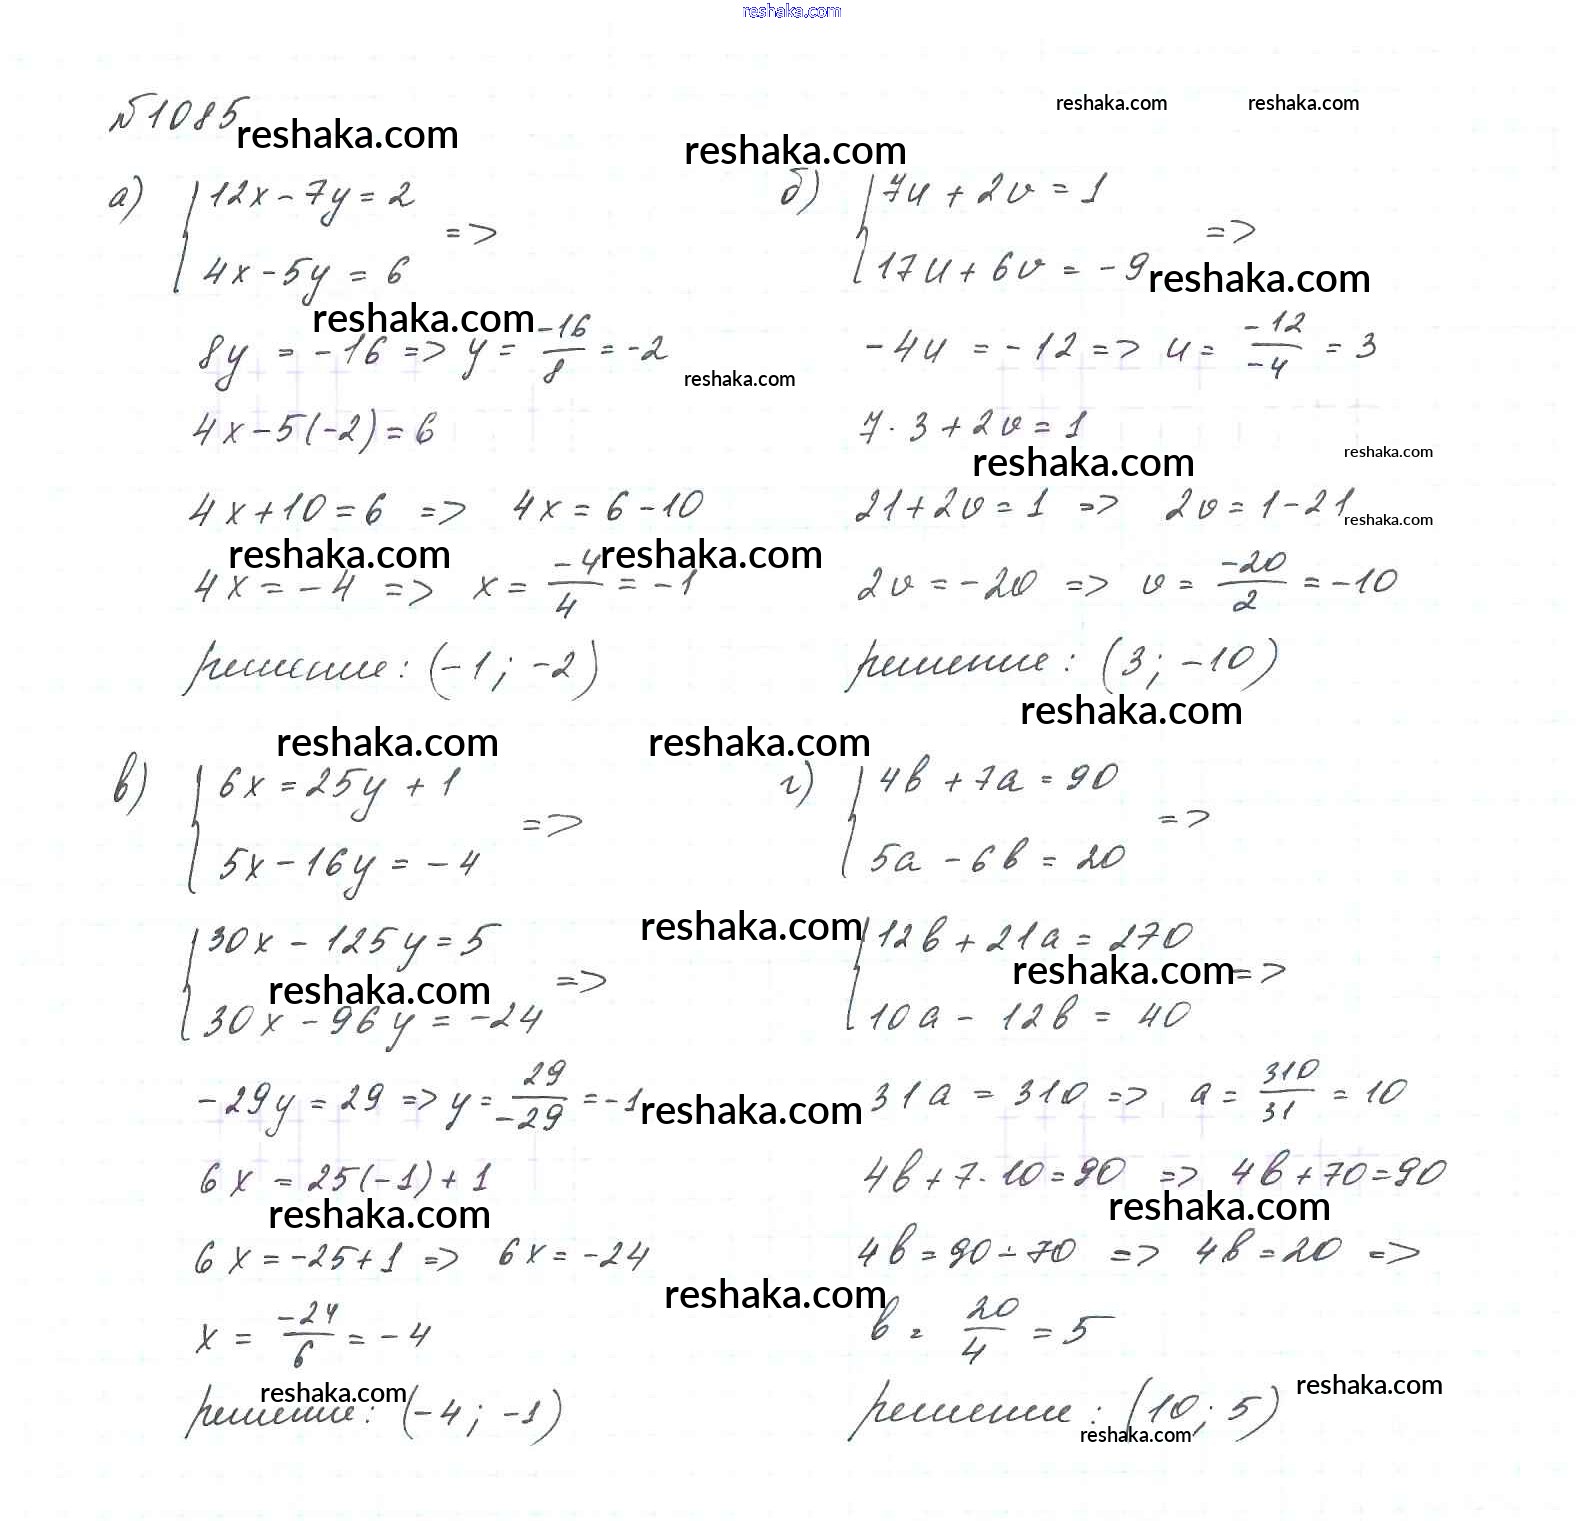 reshaka.com
№1085
reshaka.com
reshaka.com
reshaka.com
reshaka.com
а) {12x - 7y = 2
4x - 5y = 6 =>
reshaka.com
8y = -16 => y = -16/8 = -2
reshaka.com
4x - 5(-2) = 6
4x + 10 = 6 => 4x = 6 - 10
reshaka.com
reshaka.com
4x = -4 => x = -4/4 = -1
решение: (-1; -2)
б) {7u + 2v = 1
17u + 6v = -9 =>
reshaka.com
-4u = -12 => u = -12/-4 = 3
7·3 + 2v = 1
reshaka.com
reshaka.com
21 + 2v = 1 => 2v = 1 - 21
reshaka.com
2v = -20 => v = -20/2 = -10
решение: (3; -10)
reshaka.com
reshaka.com
reshaka.com
в) {6x = 25y + 1
5x - 16y = -4 =>
{30x - 125y = 5
reshaka.com
30x - 96y = -24 =>
-29y = 29 => y = 29/-29 = -1
6x = 25(-1) + 1
reshaka.com
6x = -25 + 1 => 6x = -24
x = -24/6 = -4
reshaka.com
решение: (-4; -1)
г) {4b + 7a = 90
5a - 6b = 20 =>
reshaka.com
{12b + 21a = 270
reshaka.com
10a - 12b = 40 =>
reshaka.com
31a = 310 => a = 310/31 = 10
4b + 7·10 = 90 => 4b + 70 = 90
reshaka.com
4b = 90 - 70 => 4b = 20 =>
reshaka.com
b = 20/4 = 5
reshaka.com
решение: (10; 5)
reshaka.com